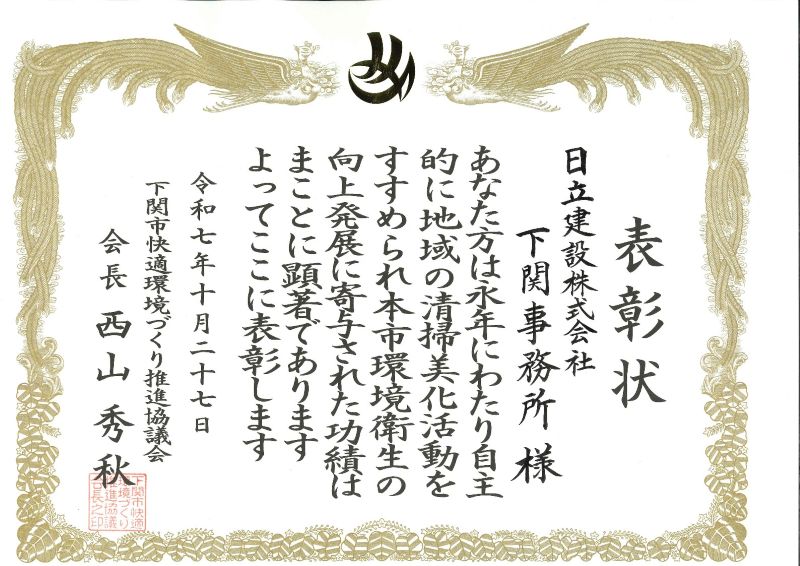 表彰状
日立建設株式会社
下関事務所 様
あなた方は永年にわたり自主
的に地域の清掃美化活動を
すすめられ本市環境衛生の
向上発展に寄与された功績は
まことに顕著であります
よってここに表彰します
令和七年十月二十七日
下関市快適環境づくり推進協議会
会長 西山秀秋
下関市快適
環境づくり
推進協議
会長之印